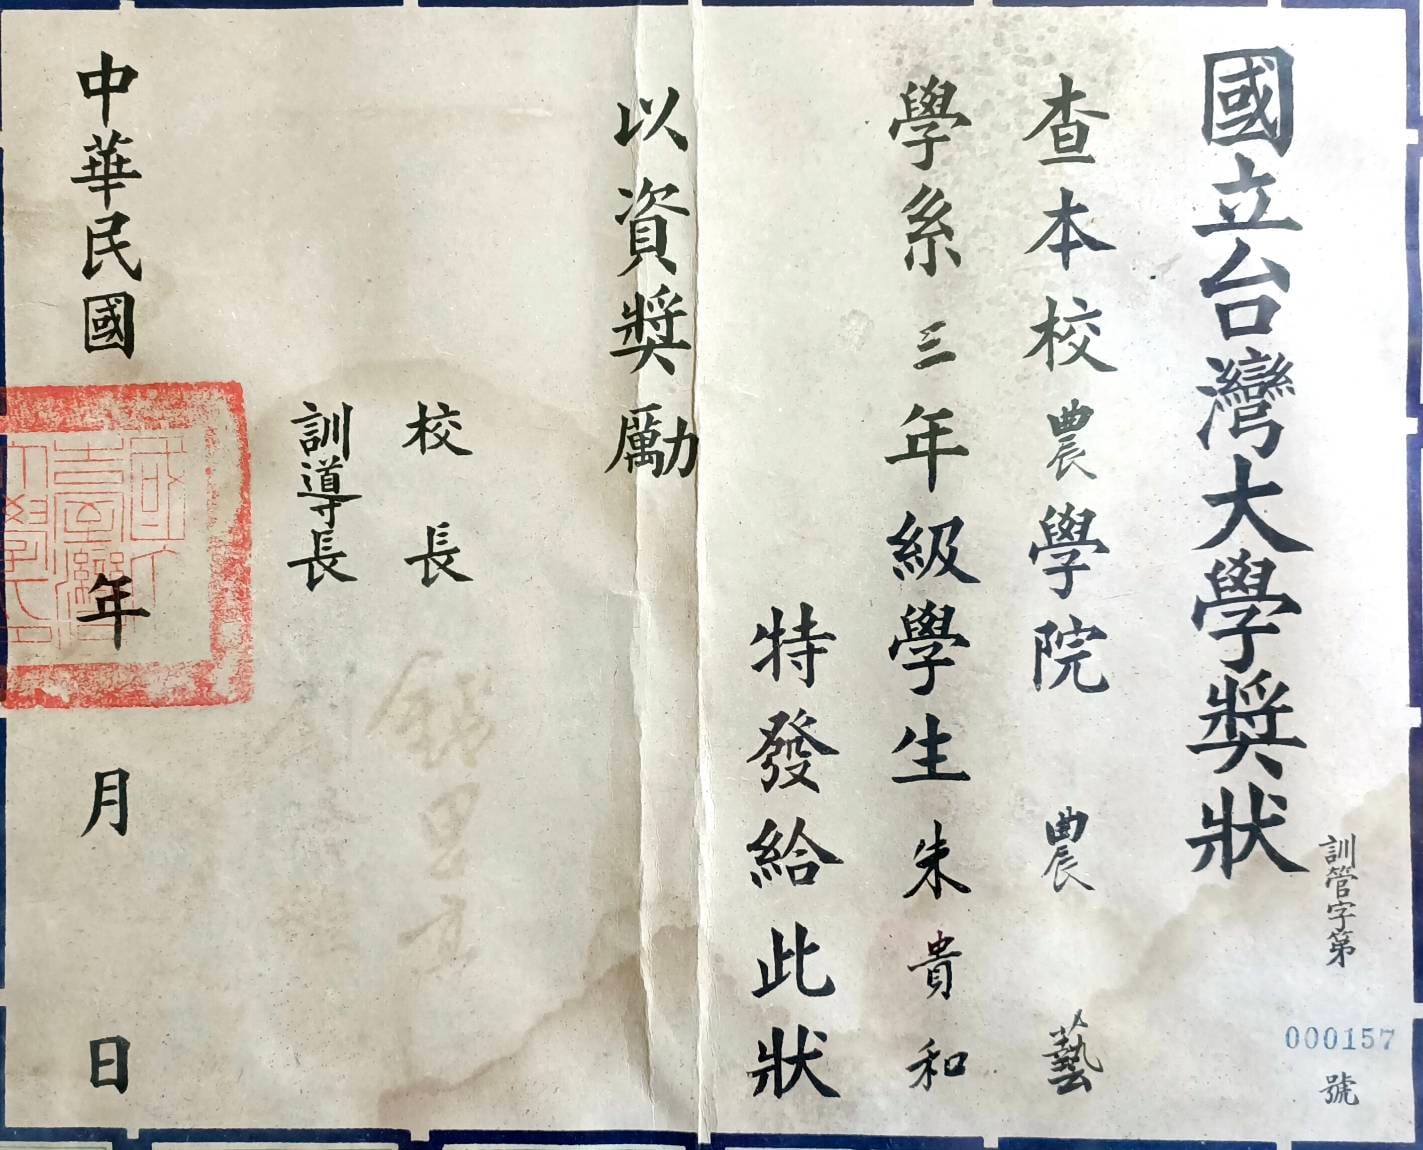 國立台灣大學獎狀
訓管字第000157號
查本校農學院 農藝
學系三年級學生朱貴和
特發給此狀
以資獎勵
校長 錢思亮
訓導長
中華民國 年 月 日